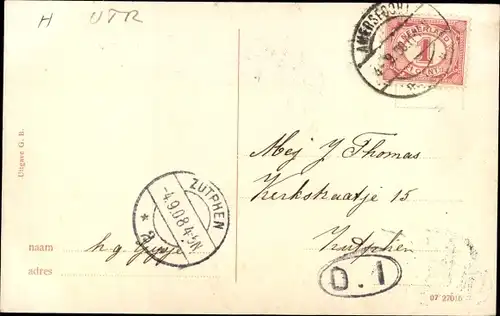 H UTR
AMERSFOORT
NEDERLAND
1
CENT
Uitgave G. B.
Mej J Thomas
Kerkstraatje 15
Zutphen
ZUTPHEN
-4.9.08 4-5N
* 2 *
naam h g
adres
D. 1
07 27016